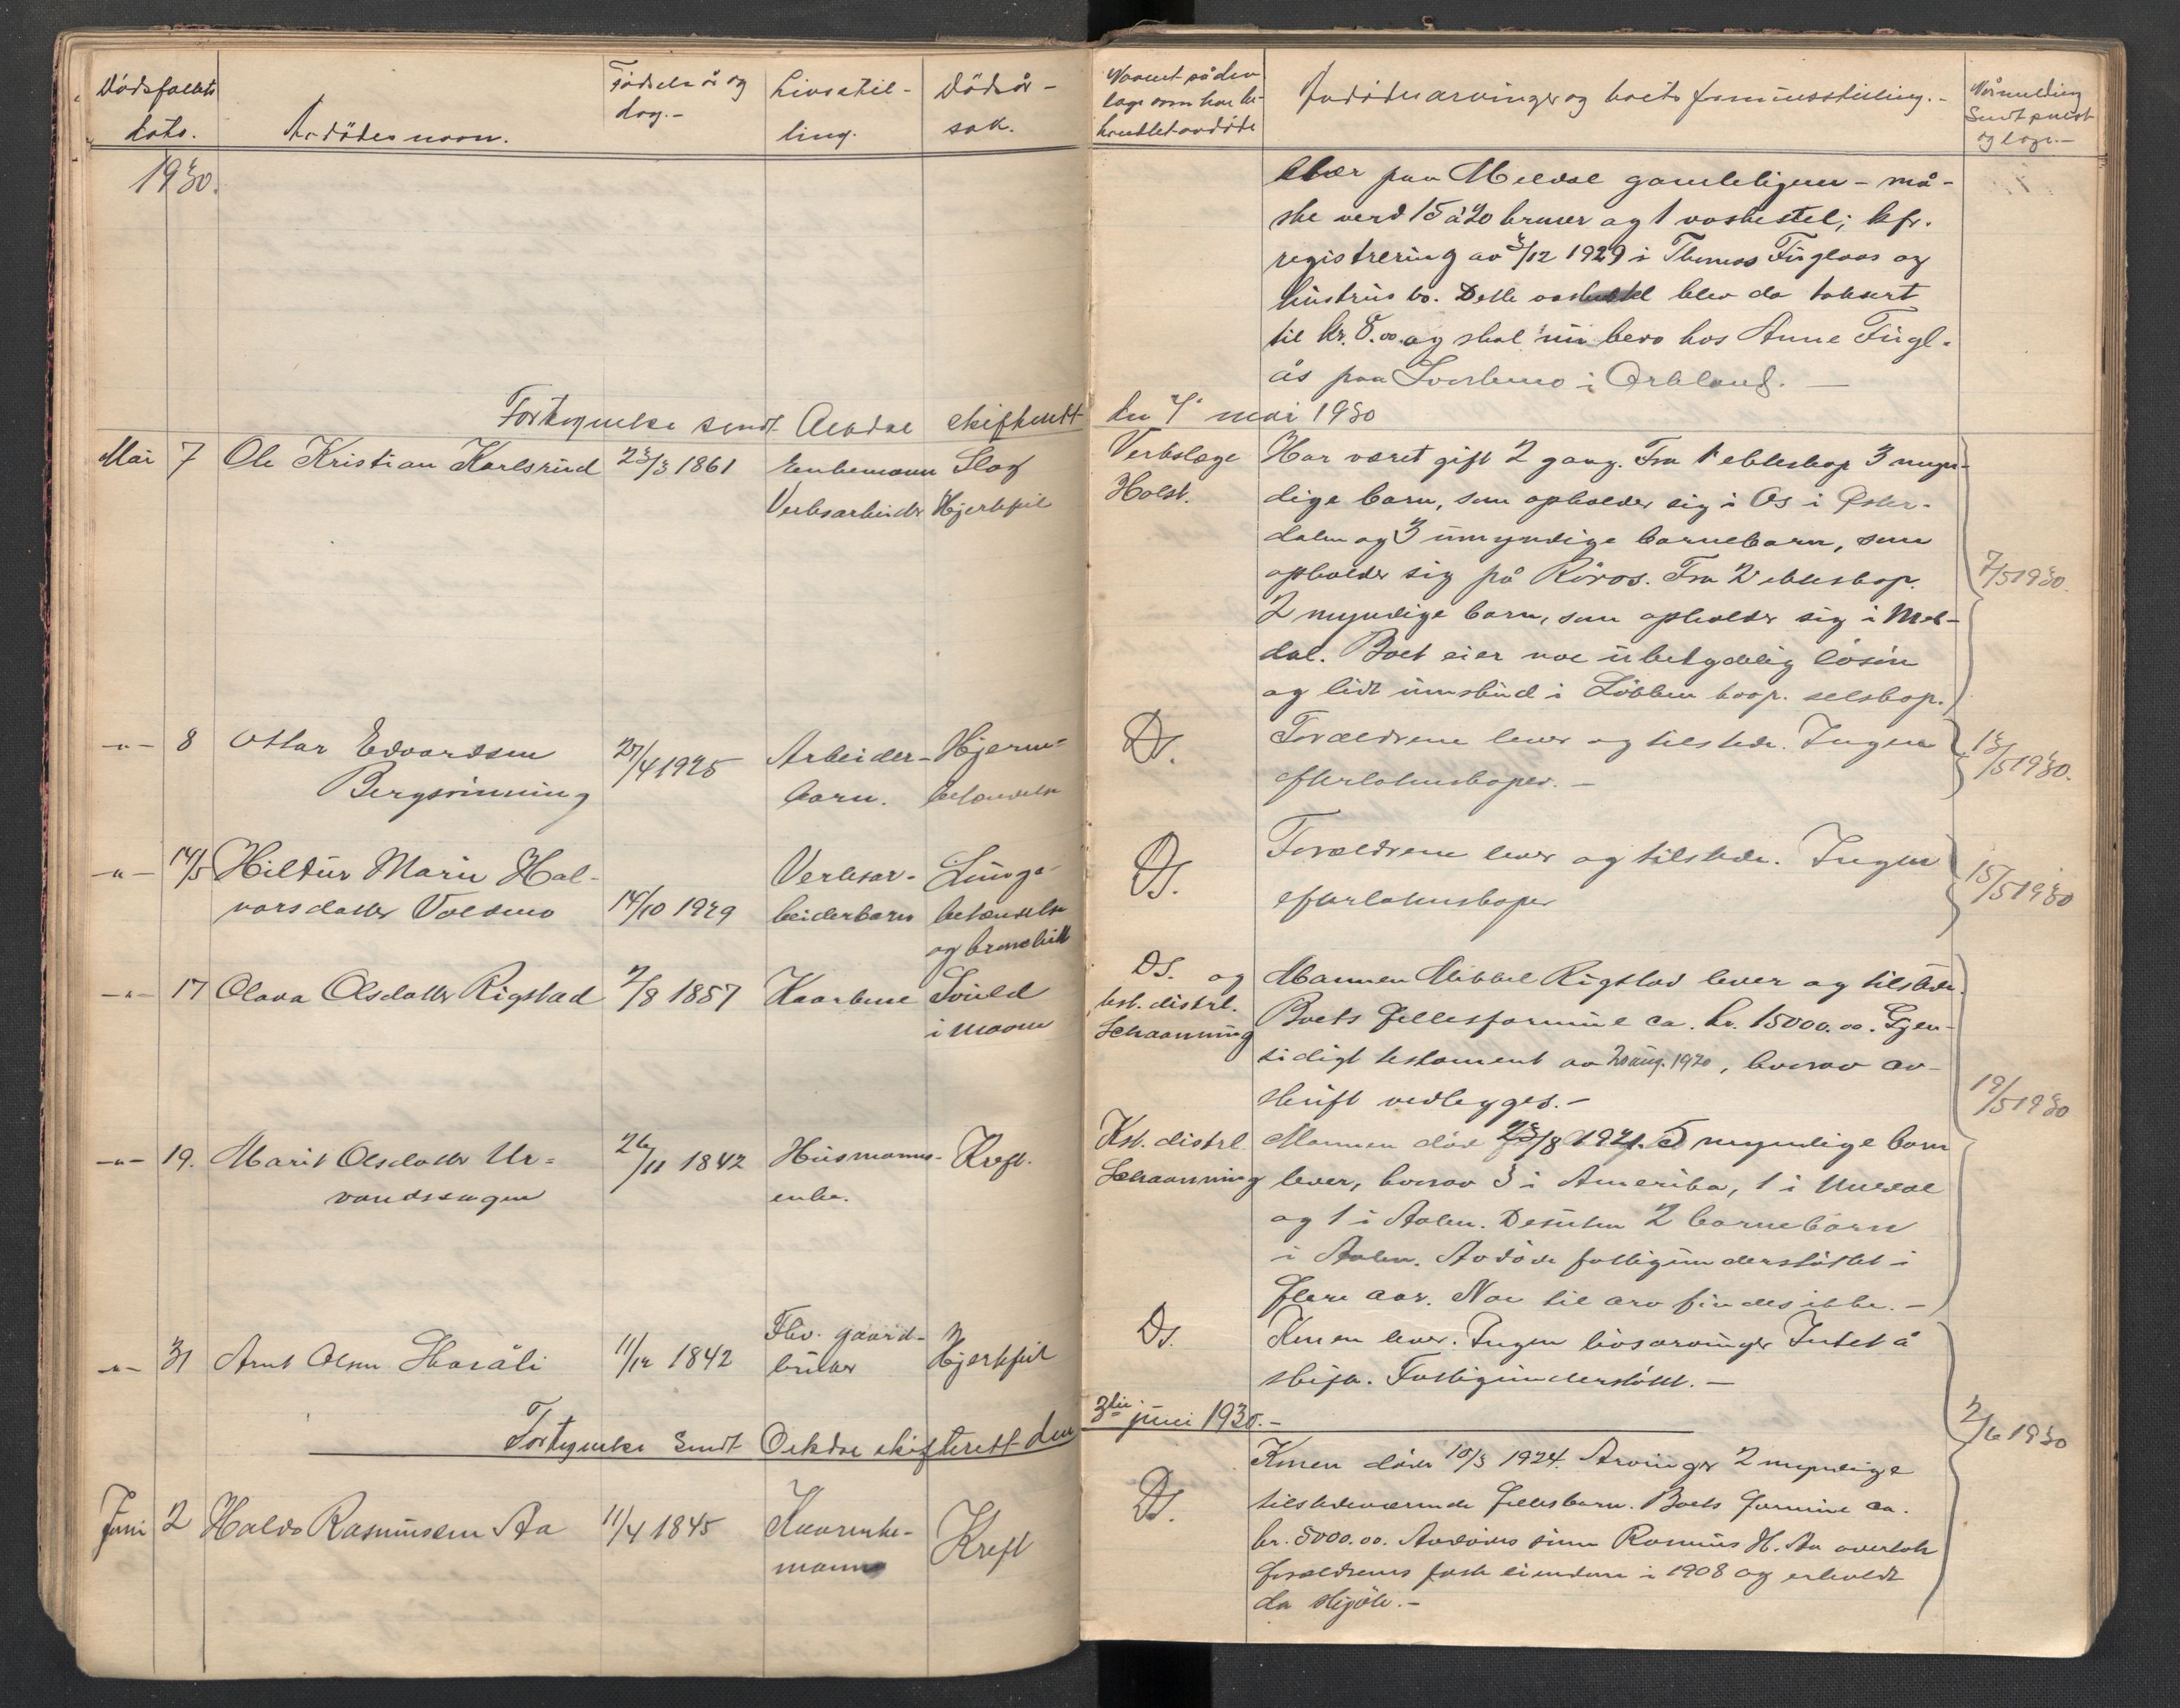 Dödsfallets
dato.
Avdödes navn.
Födselsår og
dag.-
Livsstil-
ling.
Dödsår-
sak.
Navnet på den
læge som har be-
handlet avdöde
Avdödes arvinger og boets formuesstilling.-
Nårmelding
Sendt prest
og læge.-
1930.
klær paa Meldal gamleligum - må-
ske verd 15 à 20 kroner og 1 vaskestel; kfr.
registrering av 3/12 1929 i Thomas Fuglaas og
hustrus bo. Dette vaskestel blev da taksert
til kr. 8.00 og skal nu bero hos Anne Fugl-
ås paa Svorkmo i Orkland. -
Fortegnelse sendt Orkdal skifterett
den 7de mai 1930
Mai 7 Ole Kristian Karlsrud 23/3 1861 Enkemann Slag
Verksarbeider Hjertefeil
Verkslæge
Holst.
Har været gift 2 gang. Fra 1' ekteskap 3 myn-
dige barn, som opholder sig i Os i Øster-
dalen og 3 umyndige barnebarn, som
opholder sig på Röros. Fra 2' ekteskap.
2 myndige barn, som opholder sig i Mel-
dal. Boet eier noe ubetydelig lösöre
og lidt innskud i Lökken koop. selskap.
7/5 1930.
-"- 8 Ottar Edvardsen
Bergsvinning
27/4 1925
Arbeider-
barn.
Hjerne-
betændelse
Ds.
Forældrene lever og tilstede. Ingen
efterlatenskaper. -
13/5 1930.
-"- 14/5 Hildur Marie Hal-
varsdatter Voldmo 14/10 1929
Verksar-
beiderbarn
Lunge-
betændelse
og bronchitt
Ds.
Forældrene lever og tilstede. Ingen
efterlatenskaper
15/5 1930
-"- 17 Olava Olsdatter Rigstad 2/8 1857 Kaarkone Svuld
i maven
Ds. og
kst. distrl.
Schaanning
Mannen Mikkel Rigstad lever og tilstede.
Boets fellesformue ca. kr. 15000.00. Gjen-
sidigt testament av 20 aug. 1920, hvorav av-
skrift vedlegges. -
19/5 1930
-"- 19. Marit Olsdatter Ur-
vandssagen
26/11 1842
Husmanns-
enke.
Kreft.
Kst. distrl.
Schaanning
Mannen död 23/8 1921. 5 myndige barn
lever, hvorav 3 i Amerika, 1 i Meldal
og 1 i Aalen. Desuten 2 barnebarn
i Aalen. Avdöde fattigunderstöttet i
flere aar. Noe til arv findes ikke. -
-"- 31 Arnt Olsen Skaráli 11/12 1842
Fhv. gaard-
bruker
Hjertefeil
Ds.
Konen lever. Ingen livsarvinger Intet å
skifte. Fattigunderstöttet. -
Fortegnelse sendt Orkdal skifterett den
3die juni 1930. -
2/6 1930
Juni 2 Haldo Rasmussen Aa 11/4 1845
Kaarenke-
mann
Kreft
Ds.
Konen döde 10/3 1924. Arvinger 2 myndige
tilstedeværende fellesbarn. Boets formue ca.
kr. 5000.00. Avdödes sönn Rasmus H. Aa overtok
forældrenes faste eiendom i 1908 og erholdt
da skjöte. -